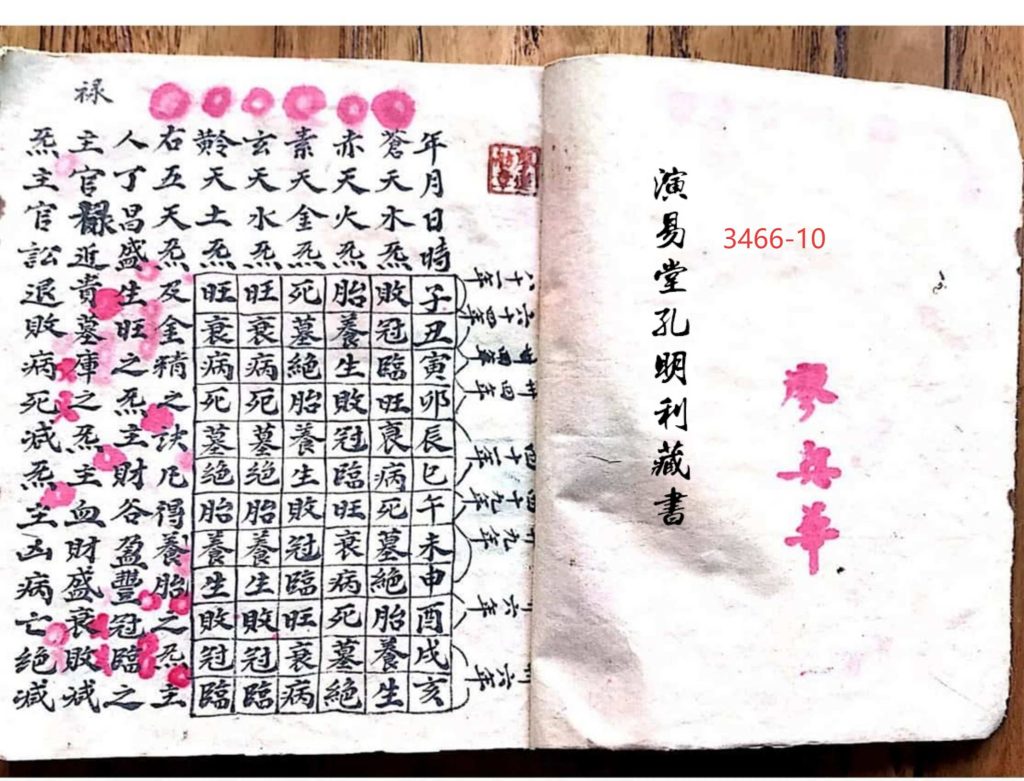 演易堂孔明利藏書
3466-10
廖
華
四十二年
四十九年
年月日時子丑寅卯辰巳午未申酉戌亥
蒼天木炁敗冠臨旺衰病死墓絕胎養生
赤天火炁胎養生敗冠臨旺衰病死墓絕
素天金炁死墓絕胎養生敗冠臨旺衰病
玄天水炁旺衰病死墓绝胎養生敗冠臨
黅天土炁旺衰病死墓绝胎養生敗冠臨
右五天炁及金精之訣凡得養胎之炁主
人丁昌盛生旺之炁主財谷盈豐冠臨之
禄
主官祿近貴墓庫之炁主血財盛衰敗减
炁主官訟退敗病死减炁主凶病亡绝减